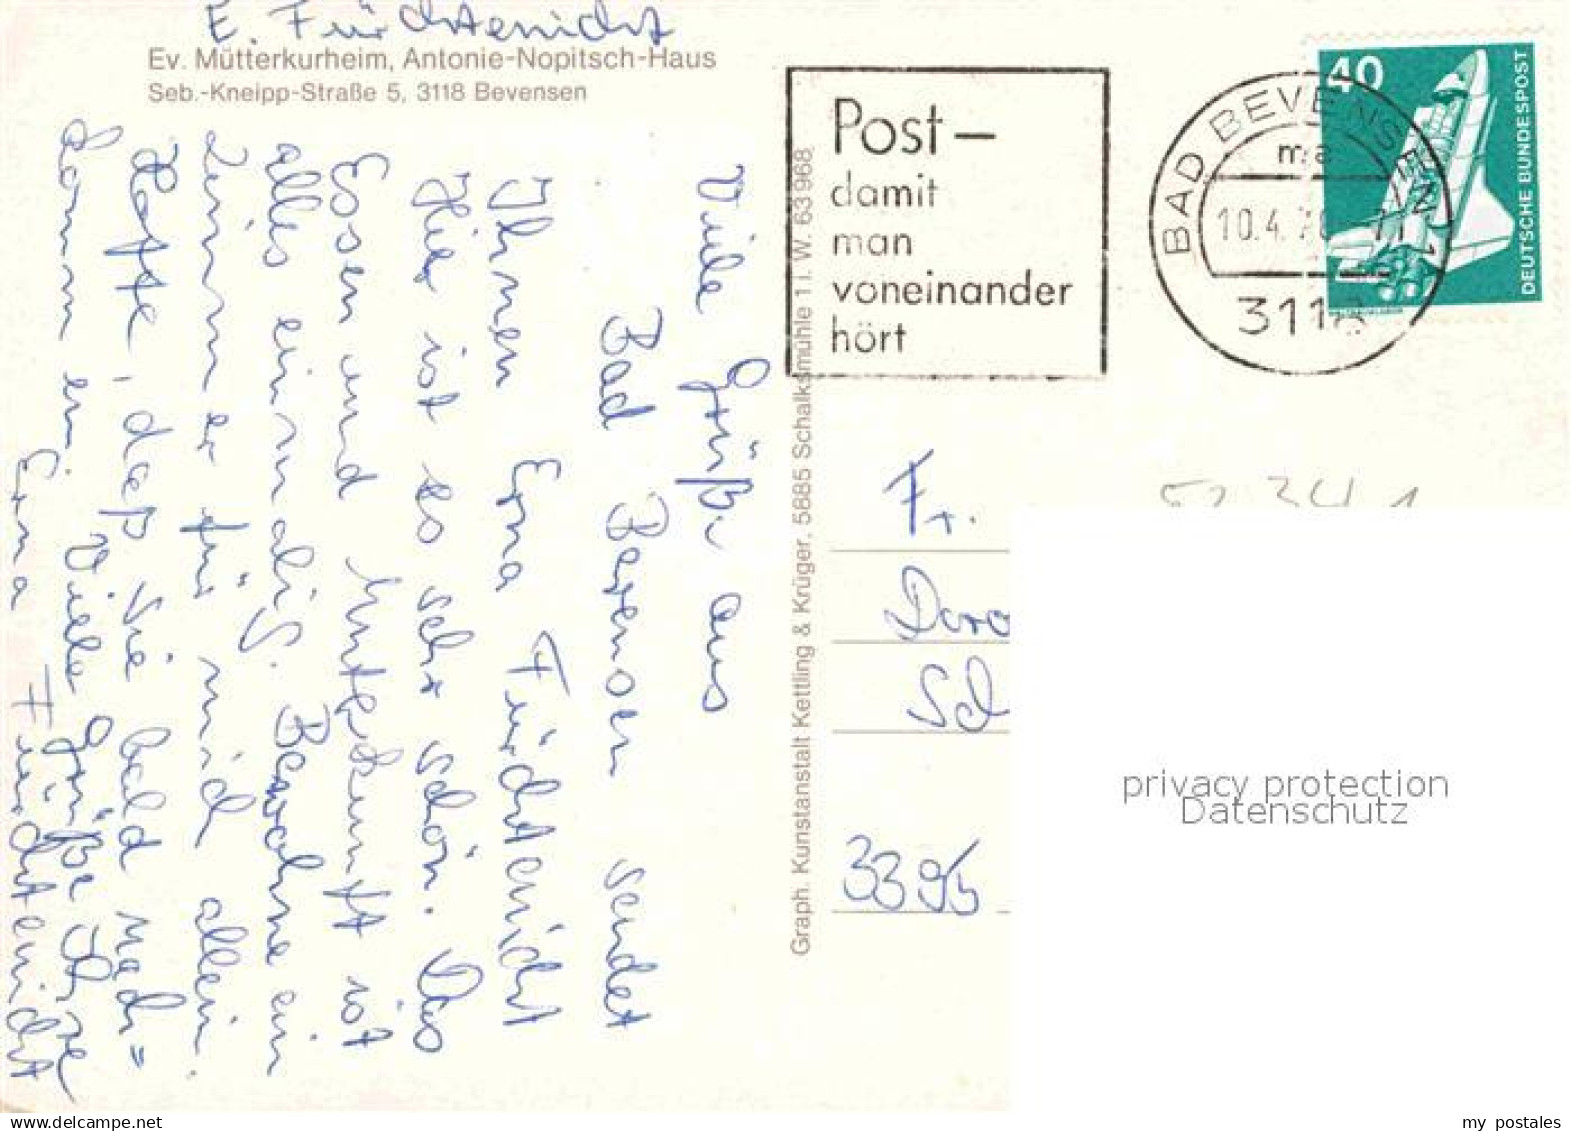 E. Fürchtenicht
Ev. Mütterkurheim, Antonie-Nopitsch-Haus
Seb.-Kneipp-Straße 5, 3118 Bevensen
Viele Grüße aus
Bad Bevensen sendet
Ihnen Erna Fürchtenicht
Hier ist es sehr schön. Das
Essen und Unterkunft ist
alles einmalig. Bewohne ein
Zimmer für mich allein.
Hoffe, daß Sie bald nach=
komm en. Viele Grüße Ihre
Erna Fürchtenicht
Graph. Kunstanstalt Kettling & Krüger, 5885 Schalksmühle 1 i. W. 63 968
Post –
damit
man
voneinander
hört
BAD BEVENSEN 1
ma
10.4.
3118
40
DEUTSCHE BUNDESPOST
Fr.
Doro
Sch
3395
privacy protection
Datenschutz
my postales